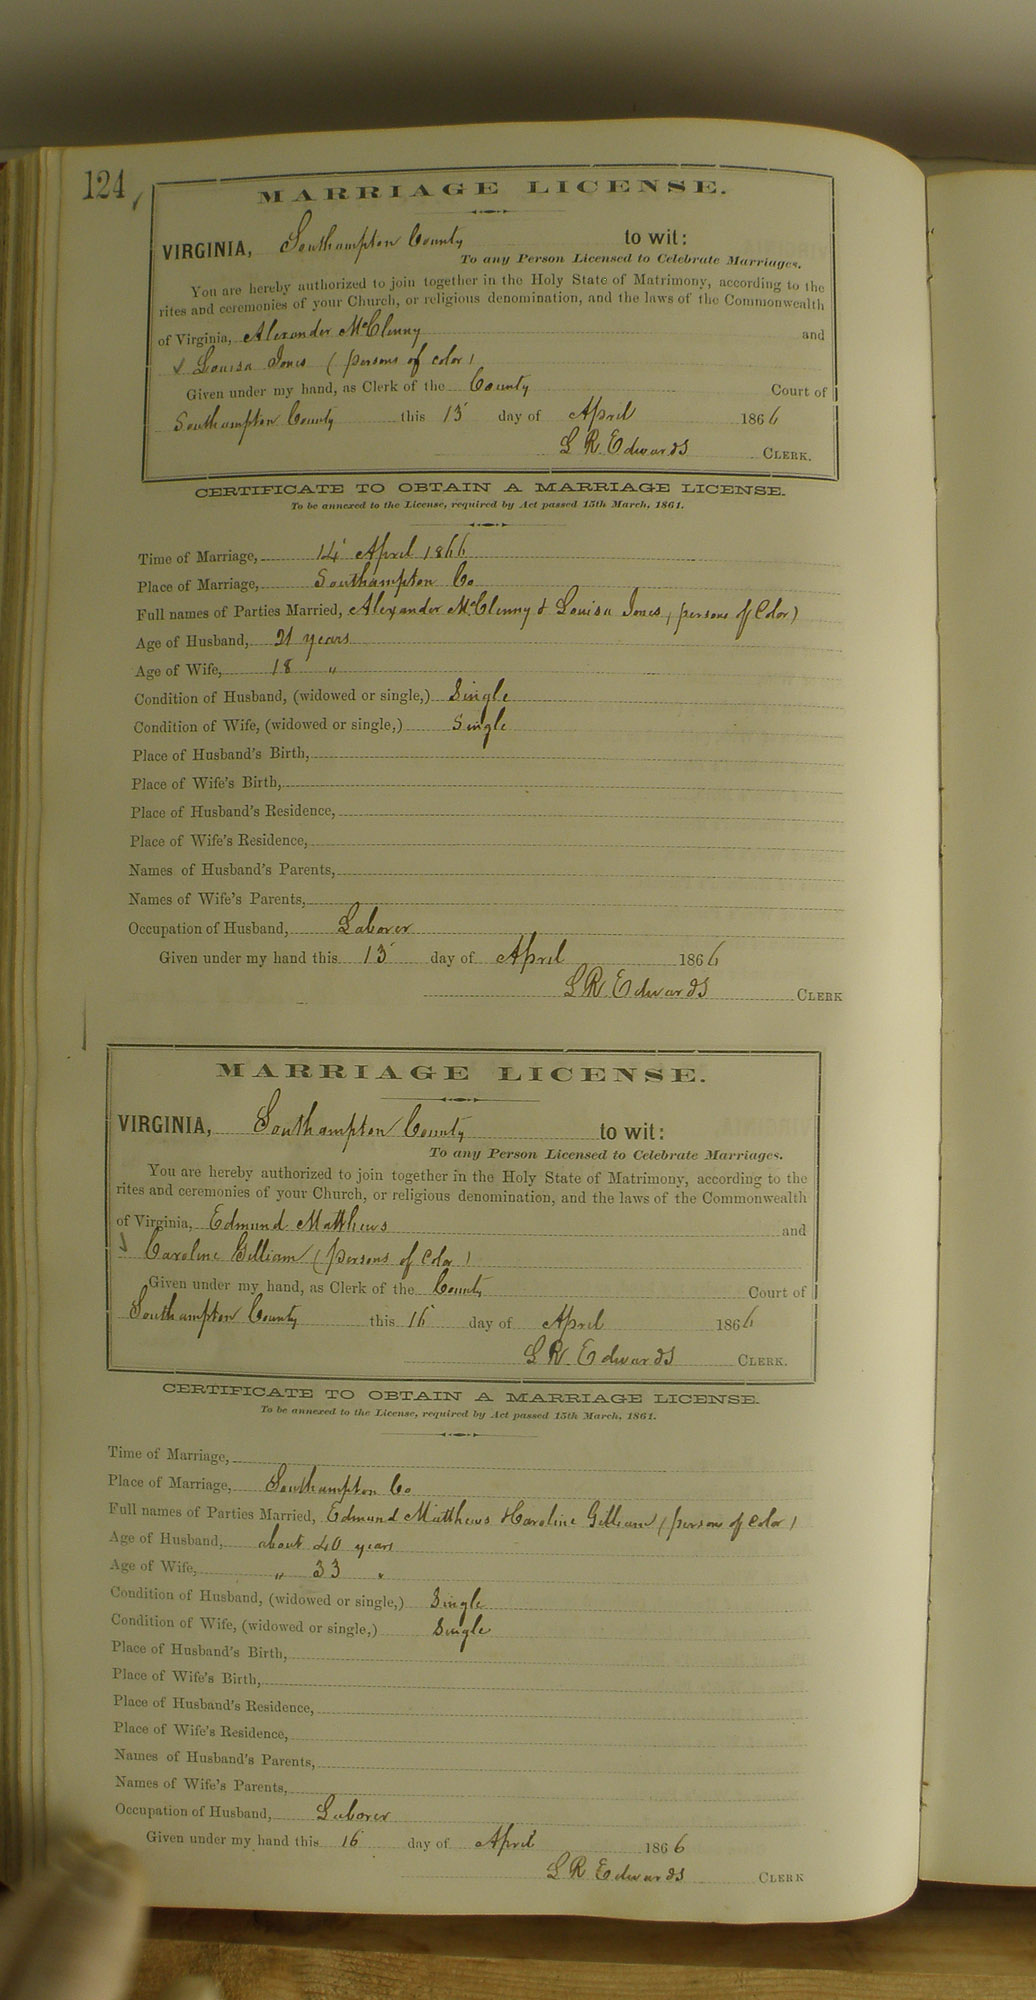 124
MARRIAGE LICENSE.
VIRGINIA, Southampton County to wit:
To any Person Licensed to Celebrate Marriages.
You are hereby authorized to join together in the Holy State of Matrimony, according to the
rites and ceremonies of your Church, or religious denomination, and the laws of the Commonwealth
of Virginia, Alexander McClenny and
& Louisa Jones (persons of color)
Given under my hand, as Clerk of the County Court of
Southampton County this 13 day of April 1866
L R Edwards CLERK.
CERTIFICATE TO OBTAIN A MARRIAGE LICENSE.
To be annexed to the License, required by Act passed 15th March, 1861.
Time of Marriage, 14 April 1866
Place of Marriage, Southampton Co
Full names of Parties Married, Alexander McClenny & Louisa Jones (persons of Color)
Age of Husband, 21 years
Age of Wife, 18 "
Condition of Husband, (widowed or single,) Single
Condition of Wife, (widowed or single,) Single
Place of Husband's Birth,
Place of Wife's Birth,
Place of Husband's Residence,
Place of Wife's Residence,
Names of Husband's Parents,
Names of Wife's Parents,
Occupation of Husband, Laborer
Given under my hand this 13 day of April 1866
L R Edwards CLERK
MARRIAGE LICENSE.
VIRGINIA, Southampton County to wit:
To any Person Licensed to Celebrate Marriages.
You are hereby authorized to join together in the Holy State of Matrimony, according to the
rites and ceremonies of your Church, or religious denomination, and the laws of the Commonwealth
of Virginia, Edmund Matthews and
Caroline Gilliam (persons of Color)
Given under my hand, as Clerk of the County Court of
Southampton County this 16 day of April 1866
L R Edwards CLERK.
CERTIFICATE TO OBTAIN A MARRIAGE LICENSE.
To be annexed to the License, required by Act passed 15th March, 1861.
Time of Marriage,
Place of Marriage, Southampton Co
Full names of Parties Married, Edmund Matthews & Caroline Gilliam (persons of Color)
Age of Husband, about 40 years
Age of Wife, " 33 "
Condition of Husband, (widowed or single,) Single
Condition of Wife, (widowed or single,) Single
Place of Husband's Birth,
Place of Wife's Birth,
Place of Husband's Residence,
Place of Wife's Residence,
Names of Husband's Parents,
Names of Wife's Parents,
Occupation of Husband, Laborer
Given under my hand this 16 day of April 1866
L R Edwards CLERK